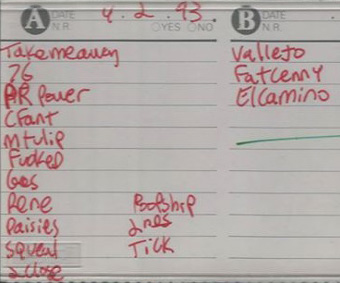 A DATE 4.2.93 N.R. YES NO
Takemeaway
26
AR Power
CFant
mtulip
Fucked
Gas
Rene
Daisies
Squeal
2close
Poopship
2nds
Tick
B DATE N.R.
Vallejo
Fatlenny
ElCamino